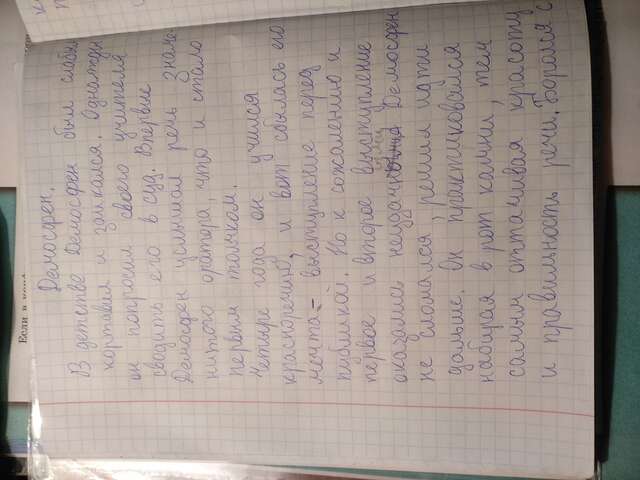 Демосфен.
В детстве Демосфен был слабым
картавил и заикался. Однажды
он попросил своего учителя
сводить его в суд. Впервые
Демосфен услышал речь знаме
нитого оратора, что и стало
первым толчком.
Четыре года он учился
красноречию, и вот сбылась его
мечта - выступление перед
публикой. Но к сожалению и
первое и второе выступление
оказались неудачными Демосфен
не сломался, решил идти
дальше. Он практиковался
набирая в рот камни, тем
самым оттачивая красоту
и правильность речи. Боролся с
Если в